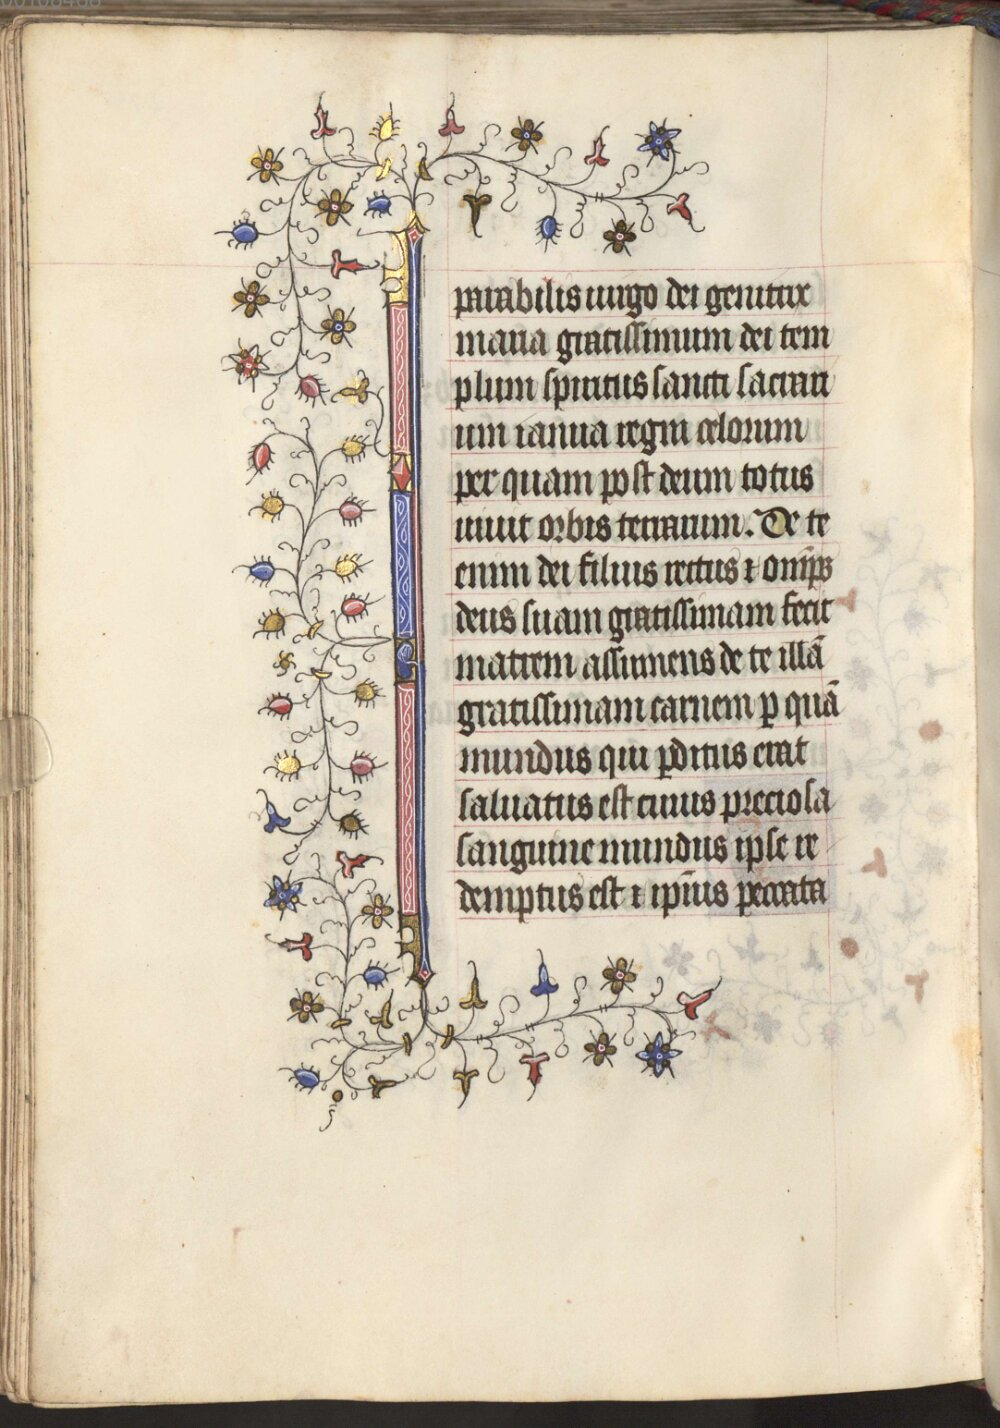 parabilis uirgo dei genitrix
maria gratissimum dei tem
plum spiritus sancti sacrari
um ianua regni celorum
per quam post deum totus
uiuit orbis terrarum. De te
enim dei filius uerus ⁊ om̅ps
deus suam gratissimam fecit
matrem assumens de te illā
gratissimam carnem ꝑ quā
mundus qui ꝑditus erat
saluatus est cuius preciosa
sanguine mundus ipse re
demptus est ⁊ ip̅ius peccata